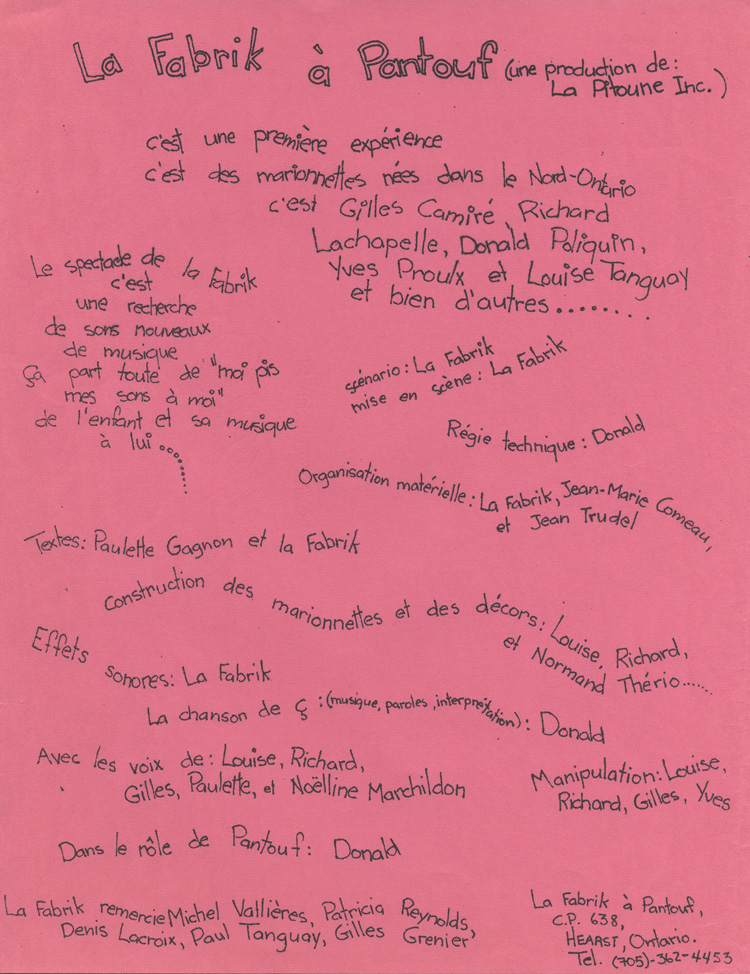 La Fabrik à Pantouf (une production de:
La Pitoune Inc.)
c'est une première expérience
c'est des marionnettes nées dans le Nord-Ontario
c'est Gilles Camiré, Richard
Lachapelle, Donald Poliquin,
Yves Proulx et Louise Tanguay
et bien d'autres........
Le spectacle de la Fabrik
c'est
une recherche
de sons nouveaux
de musique
Ça part toute de "moi pis
mes sons à moi"
de l'enfant et sa musique
à lui..........
scénario: La Fabrik
mise en scène: La Fabrik
Régie technique: Donald
Organisation matérielle: La Fabrik, Jean-Marie Comeau,
et Jean Trudel
Textes: Paulette Gagnon et la Fabrik
Construction des marionnettes et des décors: Louise, Richard,
et Normand Thério......
Effets sonores: La Fabrik
La chanson de Ç: (musique, paroles, interprétation): Donald
Avec les voix de: Louise, Richard,
Gilles, Paulette, et Noëlline Marchildon
Manipulation: Louise,
Richard, Gilles, Yves
Dans le rôle de Pantouf: Donald
La Fabrik remercie Michel Vallières, Patricia Reynolds,
Denis Lacroix, Paul Tanguay, Gilles Grenier
La Fabrik à Pantouf,
C.P. 638,
HEARST, Ontario.
Tel. (705)-362-4453